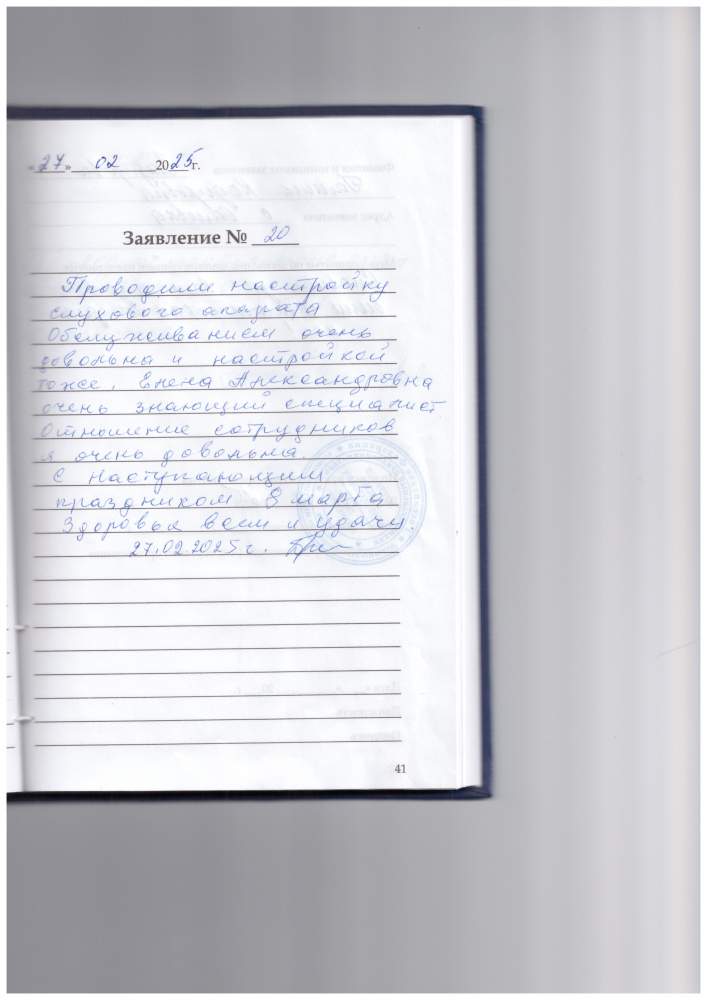 «27» 02 2025 г.
Заявление № 20
Проводили настройку
слухового апарата
Обслуживанием очень
довольна и настройкой
тоже. Елена Александровна
очень знающий специалист
Отношение сотрудников
я очень довольна.
С наступающим
праздником 8 марта
Здоровья всем и удачи
27.02.2025 г.
41